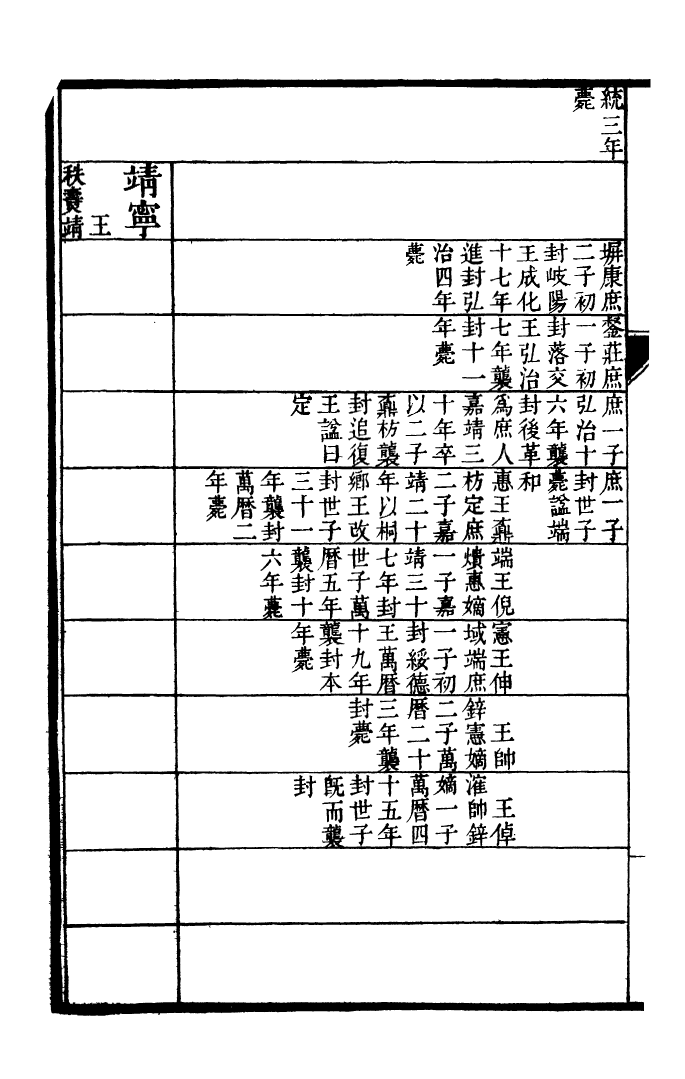 統三年
薨
靖寧
王
秩賷靖
塀康庶
二子初
封岐陽
王成化
十七年
進封弘
治四年
薨
鍪莊庶
一子初
封落交
王弘治
七年襲
封十一
年薨
庶一子
弘治十
六年襲
封後革
爲庶人
嘉靖三
十年卒
以二子
鼒枋襲
封追復
王諡曰
定
庶一子
封世子
薨諡端
和
惠王鼒
枋定庶
二子嘉
靖二十
年以桐
鄉王改
封世子
三十一
年襲封
萬曆二
年薨
端王倪
燌惠嫡
一子嘉
靖三十
七年封
世子萬
曆五年
襲封十
六年薨
憲王伸
域端庶
一子初
封綏德
王萬曆
十九年
襲封本
年薨
王帥
鋅憲嫡
二子萬
曆二十
三年襲
封薨
王倬
漼帥鋅
嫡一子
萬曆四
十五年
封世子
既而襲
封